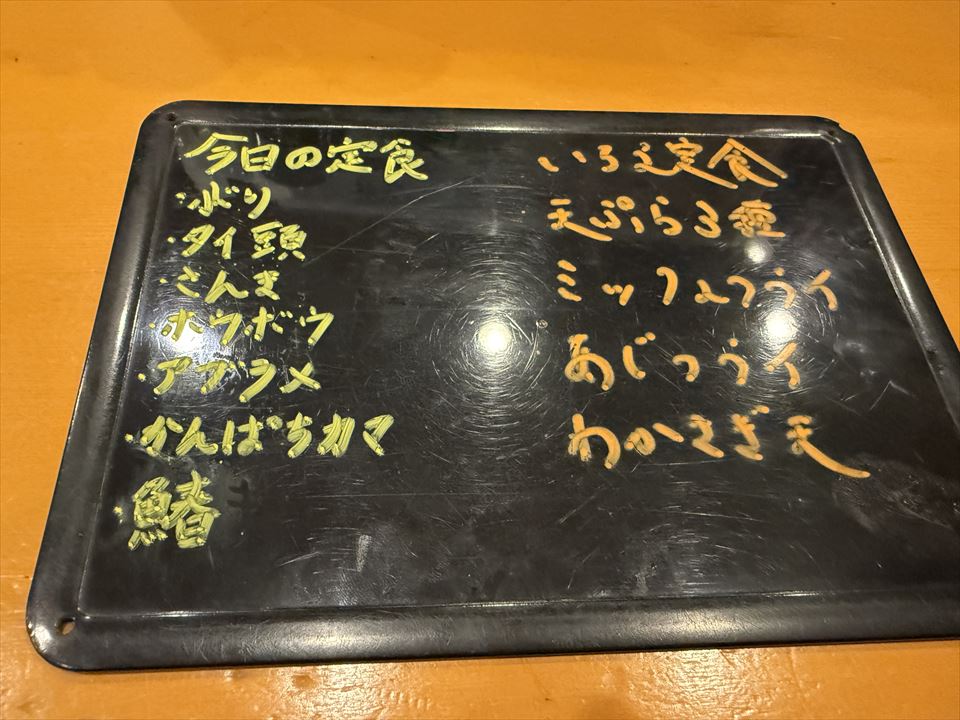 今日の定食
・ぶり
・タイ頭
・さんま
・ホウボウ
・アブラメ
・かんぱちカマ
・鰆
いろどり定食
天ぷら3種
ミックスフライ
あじフライ
わかさぎ天